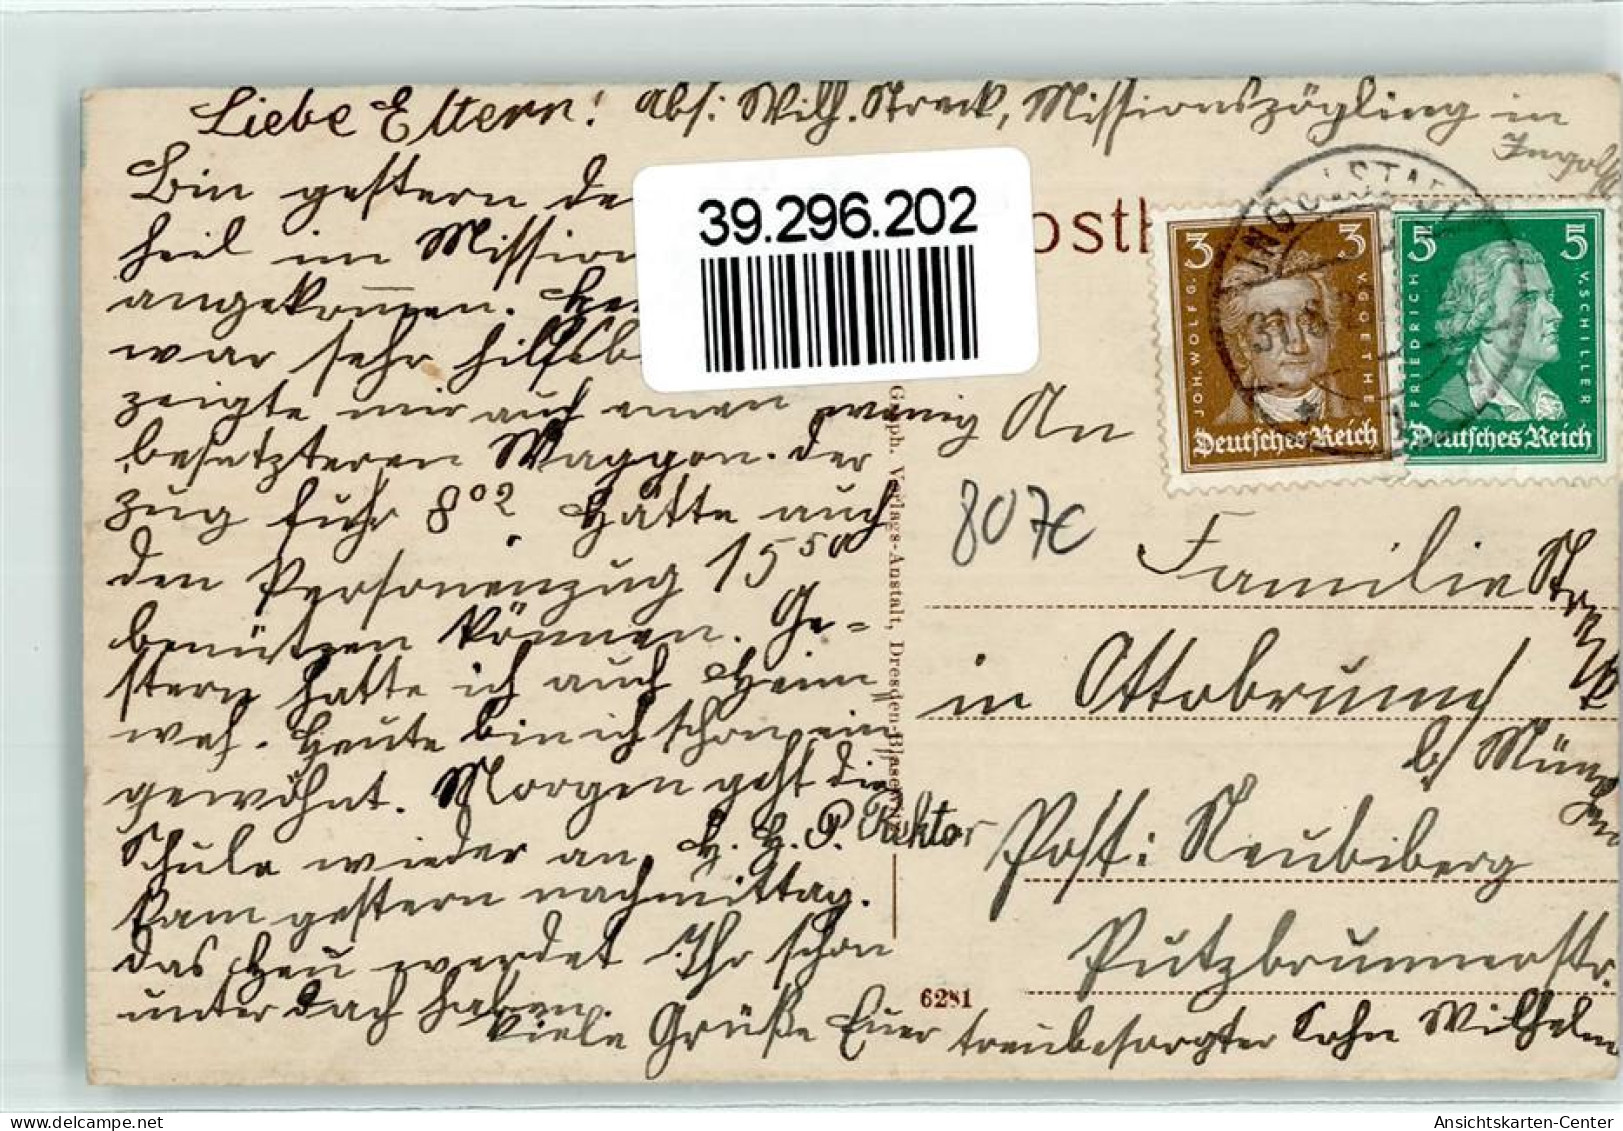 Liebe Eltern! Abs: Wilh. Streck, Missionszögling in
Ingolst
Bin gestern
heil im Mission
angekommen.
war sehr hilfsb
zeigte mir auch einen wenig
besetzteren Waggon. Der
Zug fuhr 8⁰². Hätte auch
den Personenzug 15⁵⁰
benützen können. Ge-
stern hatte ich auch Heim-
weh. Heute bin ich schon ein
gewöhnt. Morgen geht die
Schule wieder an. H. H. P. Rektor
kam gestern nachmittag.
Das Heu werdet Ihr schon
unter Dach haben.
Viele Grüße Euer treubesorgter Sohn Wilhelm
39.296.202
ostk
INGOLSTADT
31.
3 3
JOH. WOLF G. V. GOETHE
Deutsches Reich
5 5
FRIEDRICH V. SCHILLER
Deutsches Reich
Graph. Verlags-Anstalt, Dresden-Blasewitz
An
807c
Familie Streck
in Ottobrunn
b/ München
Post: Neubiberg
Putzbrunnerstr.
6281
Ansichtskarten-Center